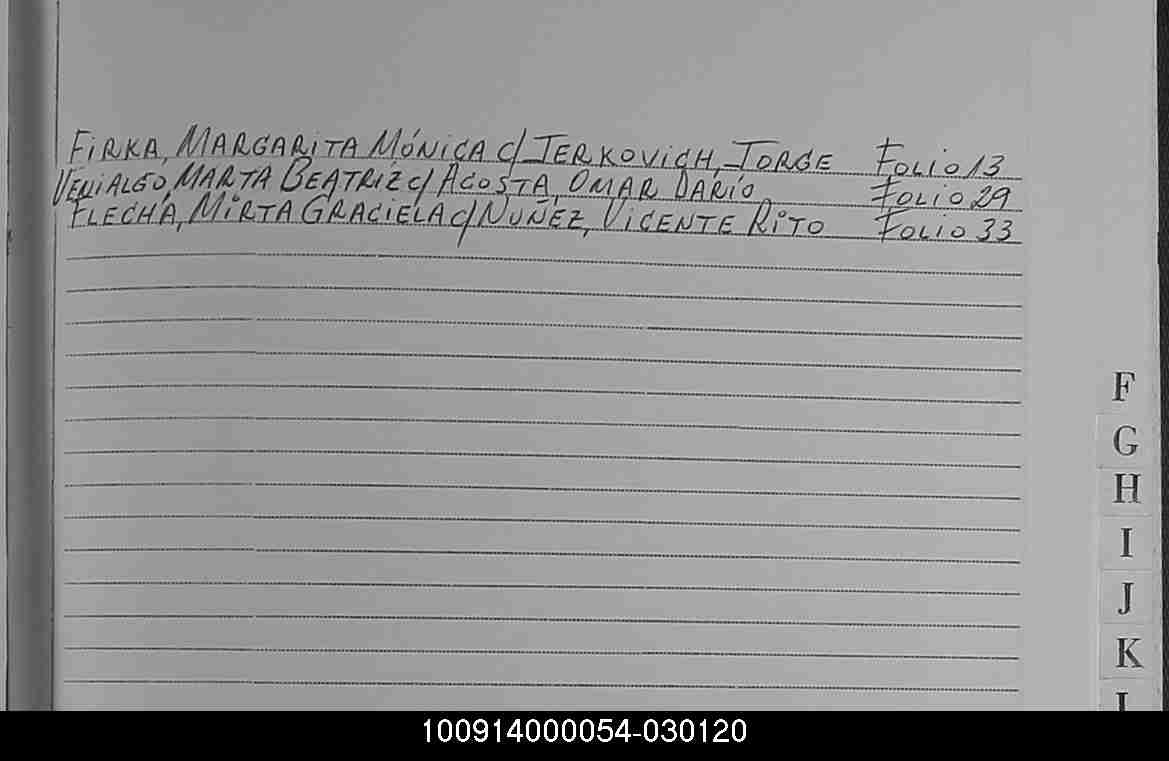 FIRKA, MARGARITA MÓNICA c/ JERKOVICH, JORGE FOLIO 13
VENIALGO, MARTA BEATRIZ c/ ACOSTA, OMAR DARÍO FOLIO 29
FLECHA, MIRTA GRACIELA c/ NUÑEZ, VICENTE RITO FOLIO 33
F
G
H
I
J
K
L
100914000054-030120